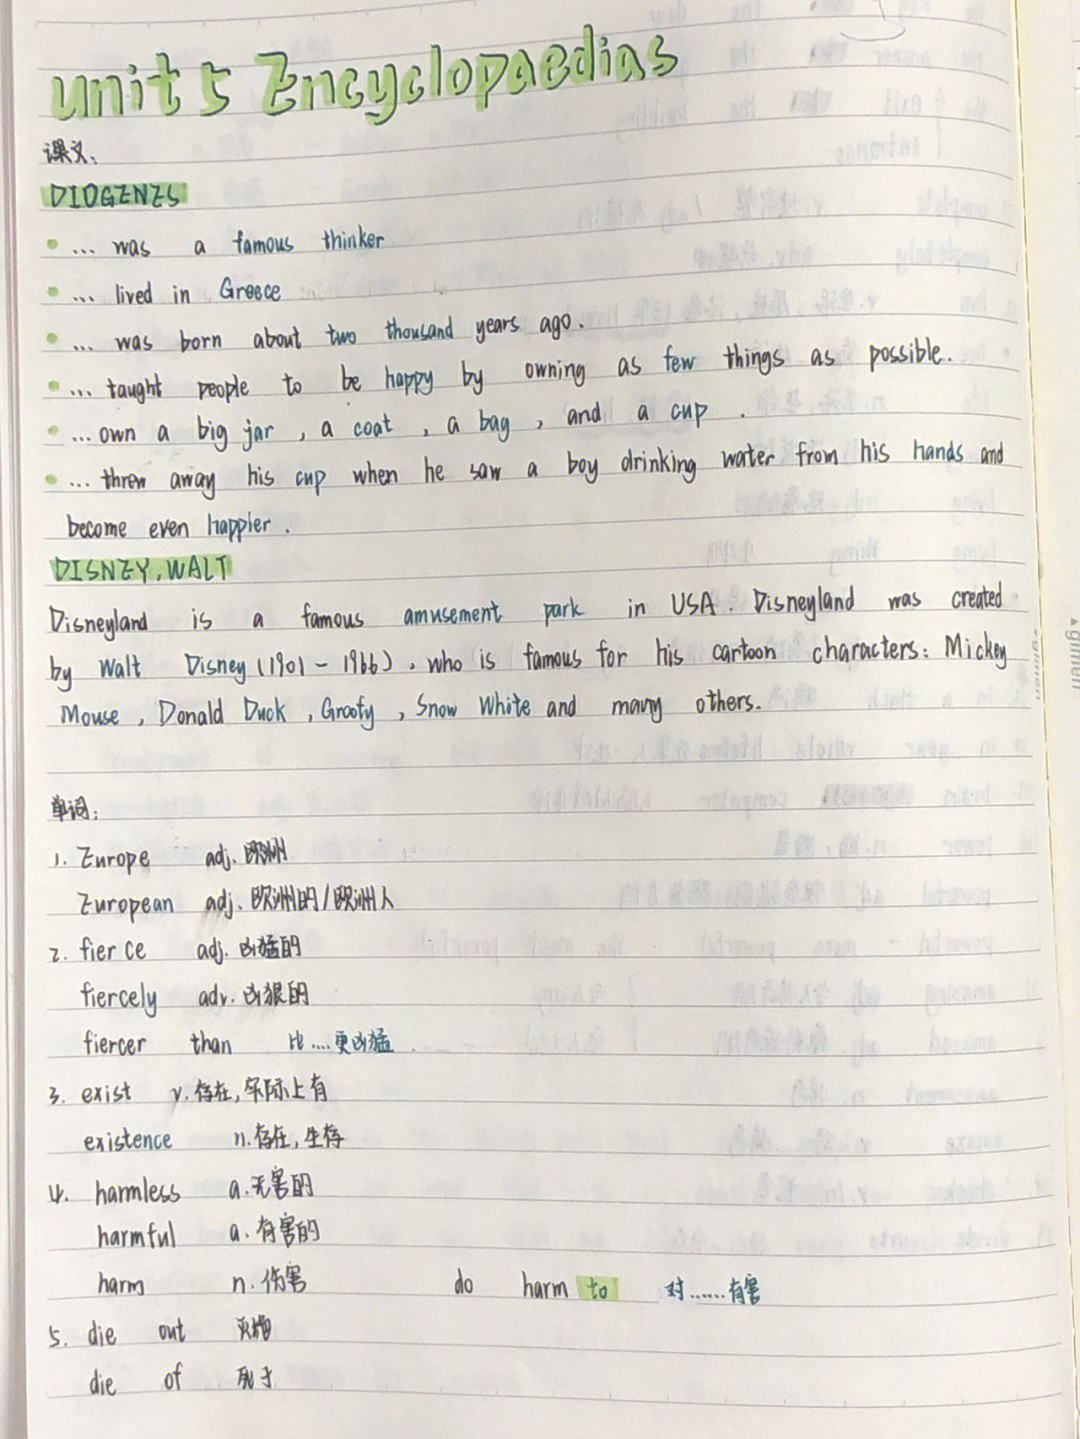 Unit 5 Encyclopaedias
课文:
DIOGENES
... was a famous thinker
... lived in Greece
... was born about two thousand years ago.
... taught people to be happy by owning as few things as possible.
... own a big jar, a coat, a bag, and a cup.
... threw away his cup when he saw a boy drinking water from his hands and
become even happier.
DISNEY, WALT
Disneyland is a famous amusement park in USA. Disneyland was created
by Walt Disney (1901 - 1966), who is famous for his cartoon characters: Mickey
Mouse, Donald Duck, Groofy, Snow White and many others.
单词:
1. Europe adj. 欧洲
European adj. 欧洲的/欧洲人
2. fierce adj. 凶猛的
fiercely adv. 凶狠的
fiercer than 比....更凶猛
3. exist v. 存在,实际上有
existence n. 存在,生存
4. harmless a. 无害的
harmful a. 有害的
harm n. 伤害 do harm to 对......有害
5. die out 灭绝
die of 死于